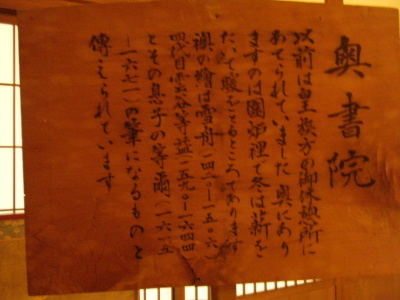 奥書院
以前は皇族方の御休憩所に
あてられていました 奥にあり
ますのは囲炉裡で冬は薪を
たいて暖をとるところであります
襖の繪は雪舟(一四二〇−一五〇六)
四代目雲谷等益(一五九〇−一六四四)
とその息子の等爾(一六一五
−一六七一)の筆になるものと
傳えられています